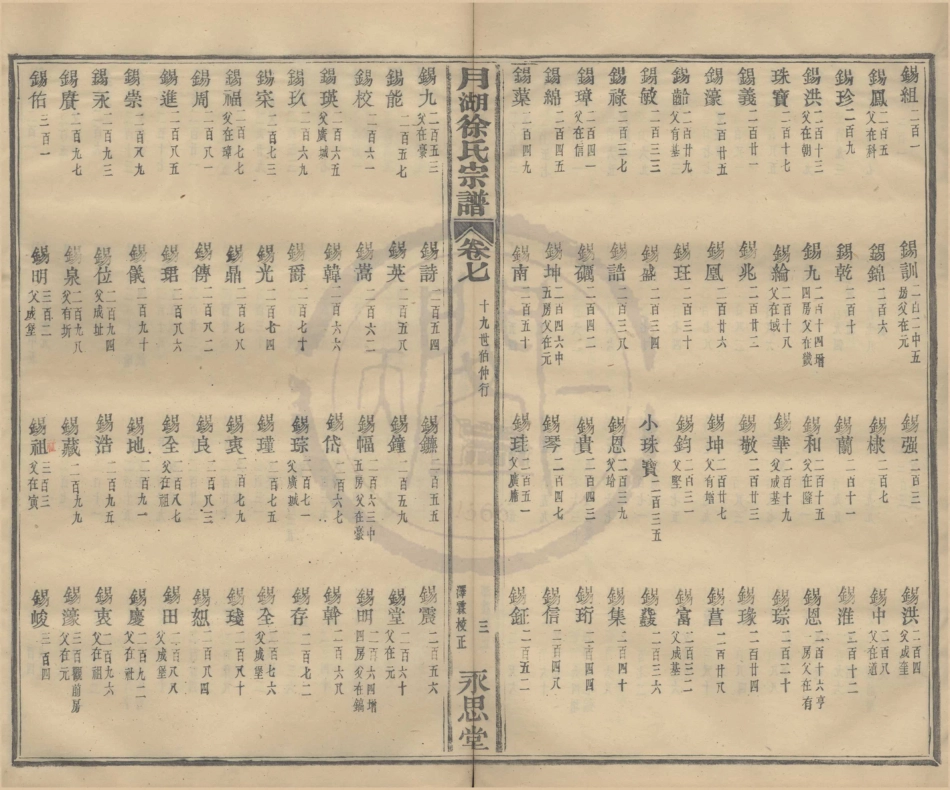 錫組 二百一 錫訓 二百二中五房父在元 錫强 二百三 錫洪 二百四 父成奎
錫鳳 二百五 父在科 錫錦 二百六 錫棣 二百七 錫中 二百八 父在道
錫珍 二百九 錫乾 二百十 錫蘭 二百十一 錫淮 二百十二
錫洪 二百十三 父在朝 錫九 二百十四增四房父在徵 錫和 二百十五 父在隆 錫恩 二百十六亨房父在有
珠寶 二百十七 錫綸 二百十八 父在域 錫華 二百十九 父成基 錫琮 二百二十
錫義 二百廿一 錫兆 二百廿二 錫敬 二百廿三 錫瑑 二百廿四
錫濠 二百廿五 錫凰 二百廿六 錫坤 二百廿七 父有增 錫菖 二百廿八
錫齡 二百廿九 父有基 錫玨 二百三十 錫鈞 二百三一 父堅 錫富 二百三二 父成基
錫敏 二百三三 錫盛 二百三四 小珠寶 二百三五 錫發 二百三六
錫祿 二百三七 錫誥 二百三八 錫恩 二百三九 父培 錫集 二百四十
錫璋 二百四一 父在信 錫礪 二百四二 錫貴 二百四三 錫珩 二百四四
錫綿 二百四五 錫坤 二百四六中五房父在元 錫琴 二百四七 錫信 二百四八
錫葉 二百四九 錫南 二百五十 錫珪 二百五一 父廣 錫鉦 二百五二
月湖徐氏宗譜 卷七 十九世伯仲行 三 澤霖校正 永思堂
錫九 二百五三 父在豪 錫詩 二百五四 錫鑣 二百五五 錫震 二百五六
錫能 二百五七 錫英 二百五八 錫鐘 二百五九 錫堂 二百六十 父在元
錫校 二百六一 錫嵩 二百六二 錫幅 二百六三中五房父在豪 錫明 二百六四增四房父在鎬
錫瑛 二百六五 父廣城 錫韓 二百六六 錫岱 二百六七 錫幹 二百六八
錫玖 二百六九 錫爵 二百七十 錫琮 二百七一 父廣城 錫存 二百七二
錫寀 二百七三 錫光 二百七四 錫瑾 二百七五 錫全 二百七六 父成堡
錫福 二百七七 父在璋 錫鼎 二百七八 錫衷 二百七九 錫瑳 二百八十
錫周 二百八一 錫傳 二百八二 錫良 二百八三 錫恕 二百八四
錫進 二百八五 錫珺 二百八六 錫全 二百八七 父在 錫田 二百八八
錫崇 二百八九 錫儀 二百九十 錫地 二百九一 錫慶 二百九二 父在社
錫永 二百九三 錫位 二百九四 父成址 錫浩 二百九五 錫衷 二百九六 父在祖
錫賡 二百九七 錫泉 二百九八 父有圻 錫藏 二百九九 錫濠 三百觀前房父在元
錫佑 三百一 錫明 三百二 父成堡 錫祖 三百三 父在寅 錫峻 三百四